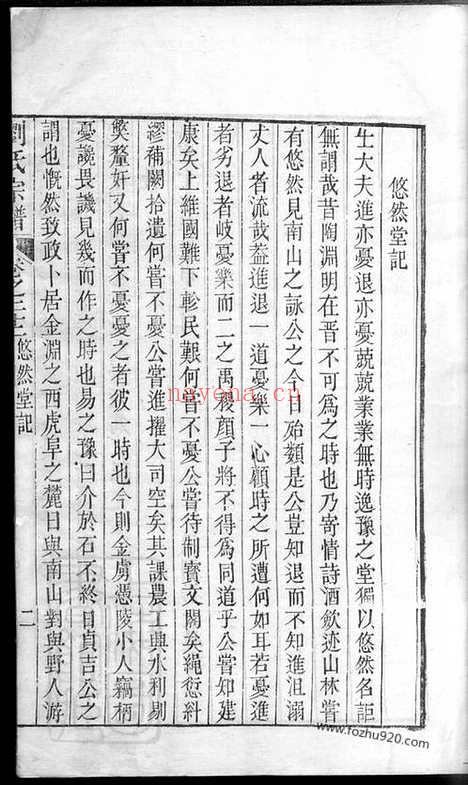 悠然堂記
士大夫進亦憂退亦憂兢兢業業無時逸豫之堂獨以悠然名詎
無謂哉昔陶淵明在晉不可為之時也乃寄情詩酒歛迹山林嘗
有悠然見南山之詠公之今日殆類是公豈知退而不知進沮溺
丈人者流哉葢進退一道憂樂一心顧時之所遭何如耳若憂進
者劣退者岐憂樂而二之禹稷顏子將不得為同道乎公嘗知建
康矣上維國難下軫民艱何嘗不憂公嘗待制寶文閣矣繩愆糾
繆補闕拾遺何嘗不憂公嘗進擢大司空矣其課農工興水利剔
獘釐奸又何嘗不憂憂之者彼一時也今則金虜憑陵小人竊柄
憂讒畏譏見幾而作之時也易之豫曰介於石不終日貞吉公之
謂也慨然致政卜居金淵之西虎阜之麓日與南山對與野人游
劉氏宗譜
卷之三
悠然堂記
二
nayena.cn
www.fozhu920.com